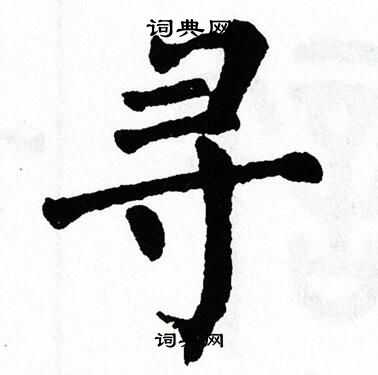 词典网
寻
词典网